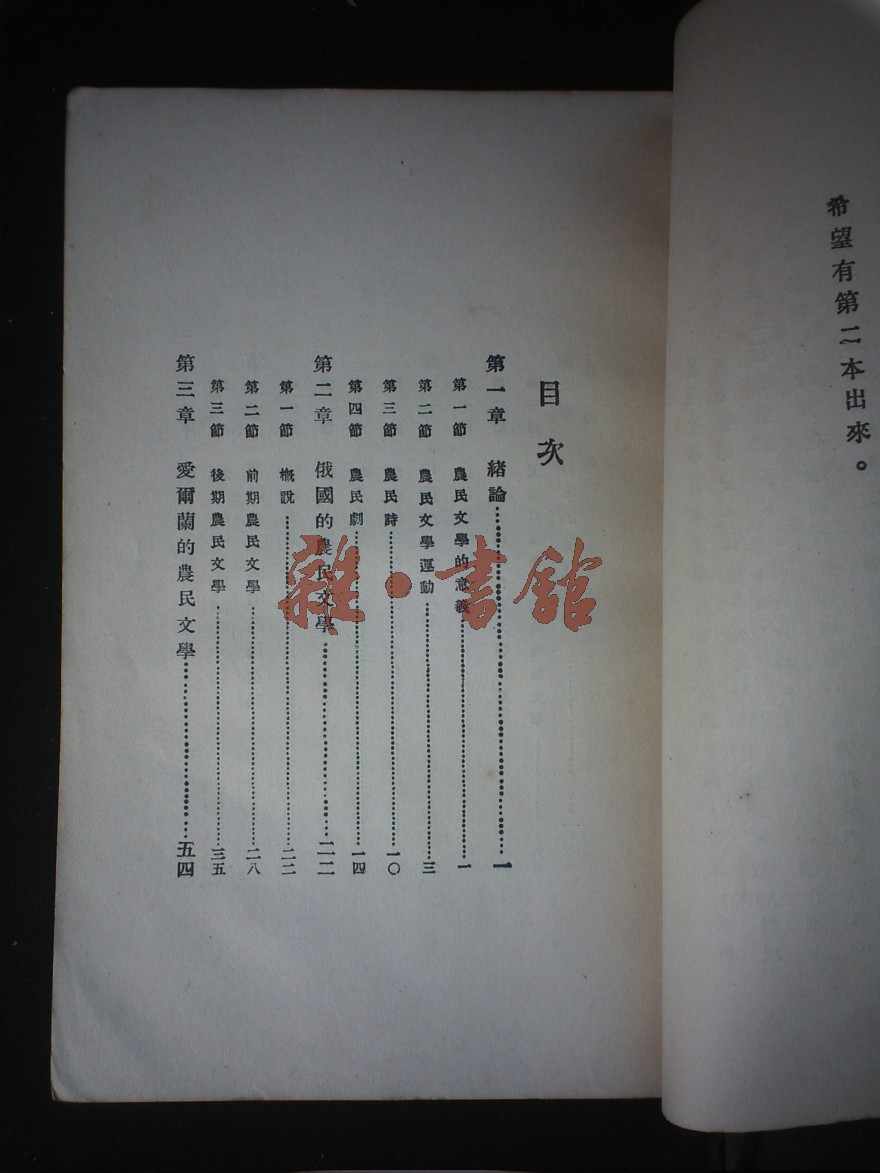 希望有第二本出來。
目次
第一章 緒論…………一
第一節 農民文學的意義…………一
第二節 農民文學運動…………三
第三節 農民詩…………一〇
第四節 農民劇…………一四
第二章 俄國的農民文學…………二二
第一節 概說…………二二
第二節 前期農民文學…………二八
第三節 後期農民文學…………三五
第三章 愛爾蘭的農民文學…………五四
雜·書館